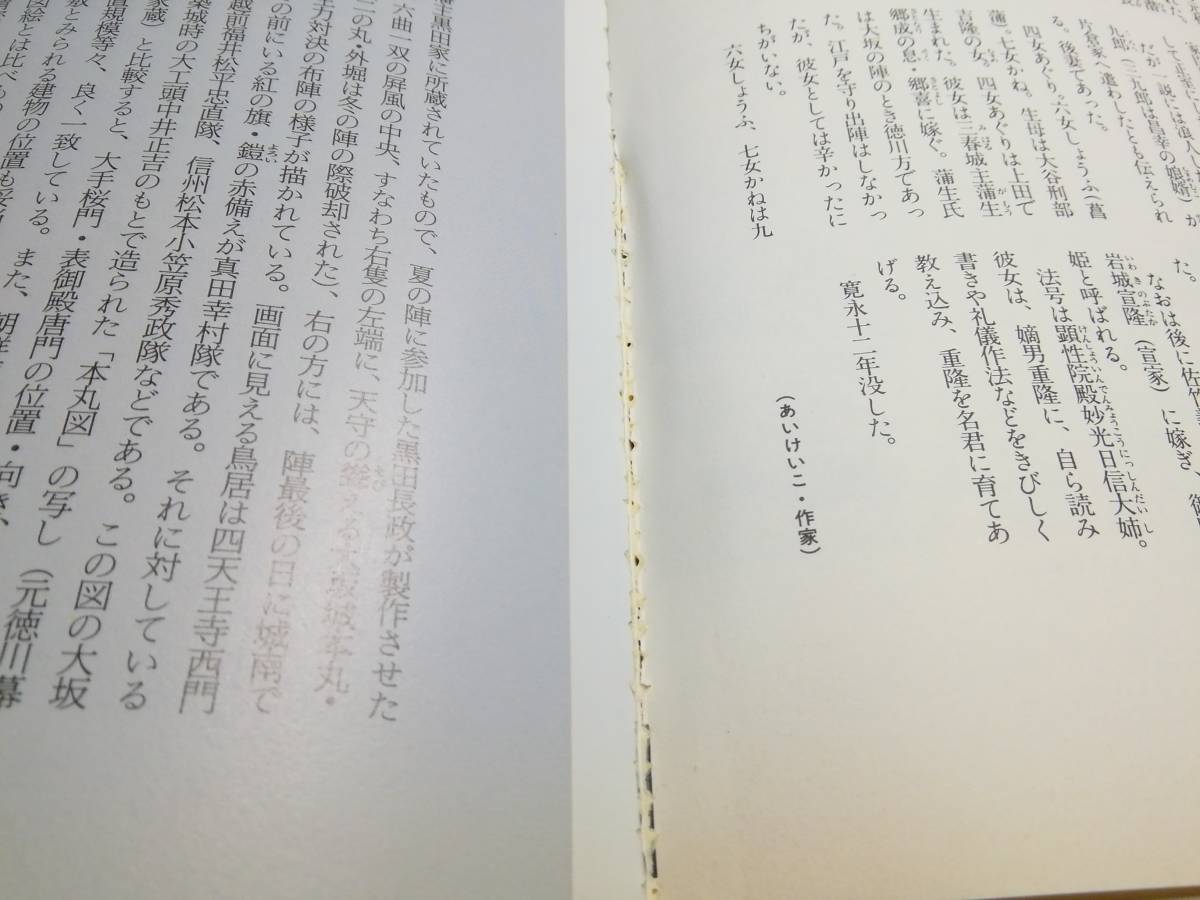 だが一説には浪人
九郎（三九郎は昌幸の娘婿）が
片倉家へ遣わしたとも伝えられ
る。後妻であった。
四女あぐり、六女しょうふ（菖
蒲。七女かね。生母は大谷刑部
吉隆の女。四女あぐりは上田で
生まれた。彼女は三春城主蒲生
郷成の息・郷喜に嫁ぐ。蒲生氏
は大坂の陣のとき徳川方であっ
た。江戸を守り出陣はしなかっ
たが、彼女としては辛かったに
ちがいない。
六女しょうふ、七女かねは九
た。
なおは後に佐竹
岩城宣隆（宣家）に嫁ぎ、御
姫と呼ばれる。
法号は顕性院殿妙光日信大姉。
彼女は、嫡男重隆に、自ら読み
書きや礼儀作法などをきびしく
教え込み、重隆を名君に育てあ
げる。
寛永十二年没した。
（あいけいこ・作家）
黒田家に所蔵されていたもので、夏の陣に参加した黒田長政が製作させた
六曲一双の屏風の中央、すなわち右隻の左端に、天守の聳える大坂城本丸・
二の丸・外堀は冬の陣の際破却された）、右の方には、陣最後の日に城南で
主力対決の布陣の様子が描かれている。画面に見える鳥居は四天王寺西門
の前にいる紅の旗・鎧の赤備えが真田幸村隊である。それに対している
越前福井松平忠直隊、信州松本小笠原秀政隊などである。この図の大坂
築城時の大工頭中井正吉のもとで造られた「本丸図」の写し（元徳川幕
家蔵）と比較すると、大手桜門・表御殿唐門の位置・向き、
置規模等々、良く一致している。また、朝鮮
敷とみられる建物の位置も妥当
図絵とは比べもの